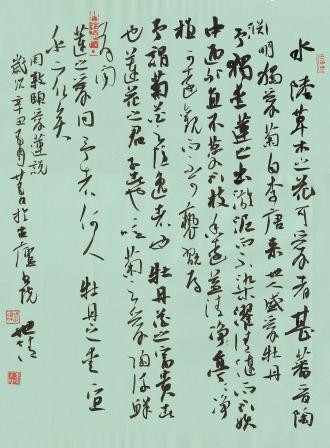 水陸草木之花可愛者甚蕃晉陶
淵明獨愛菊自李唐来世人盛愛牡丹
予獨愛蓮之出淤泥而不染濯清漣而不妖
中通外直不蔓不枝香遠益清亭亭净
植可遠觀而不可褻翫焉
予謂菊花之隱逸者也牡丹花之富貴者
也蓮花之君子者也噫菊之愛陶後鮮
有聞
蓮之愛同予者何人牡丹之愛宜
乎衆矣
周敦頤愛蓮說
歲次辛丑書於廬